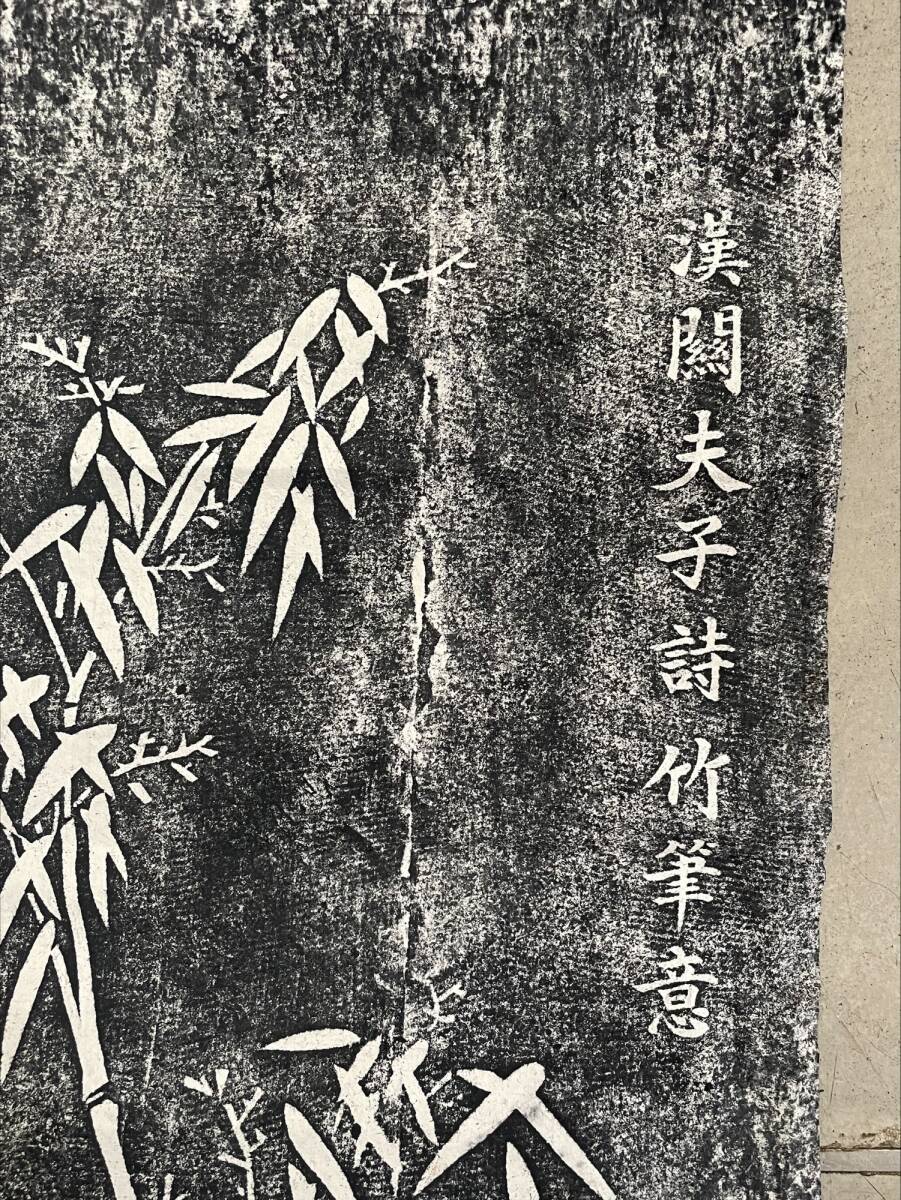 漢關夫子詩竹筆意